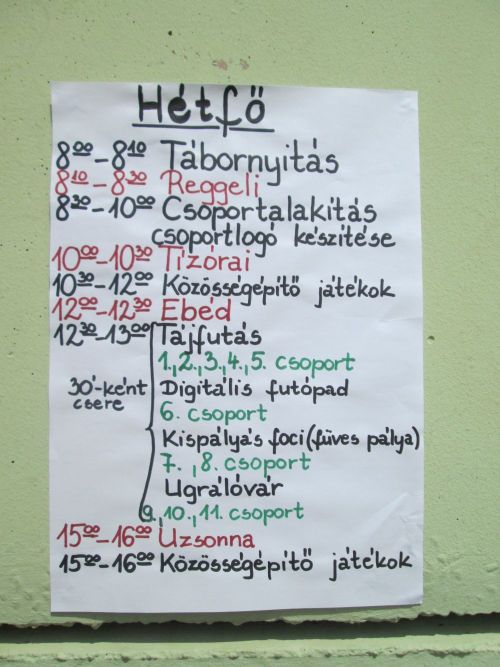 Hétfő
8⁰⁰-8¹⁰ Tábornyitás
8¹⁰-8³⁰ Reggeli
8³⁰-10⁰⁰ Csoportalakítás
csoportlogó készítése
10⁰⁰-10³⁰ Tízórai
10³⁰-12⁰⁰ Közösségépítő játékok
12⁰⁰-12³⁰ Ebéd
12³⁰-13⁰⁰ Tájfutás
1.,2.,3.,4.,5. csoport
30'-ként csere
Digitális futópad
6. csoport
Kispályás foci (füves pálya)
7.,8. csoport
Ugrálóvár
9.,10.,11. csoport
15⁰⁰-16⁰⁰ Uzsonna
15⁰⁰-16⁰⁰ Közösségépítő játékok